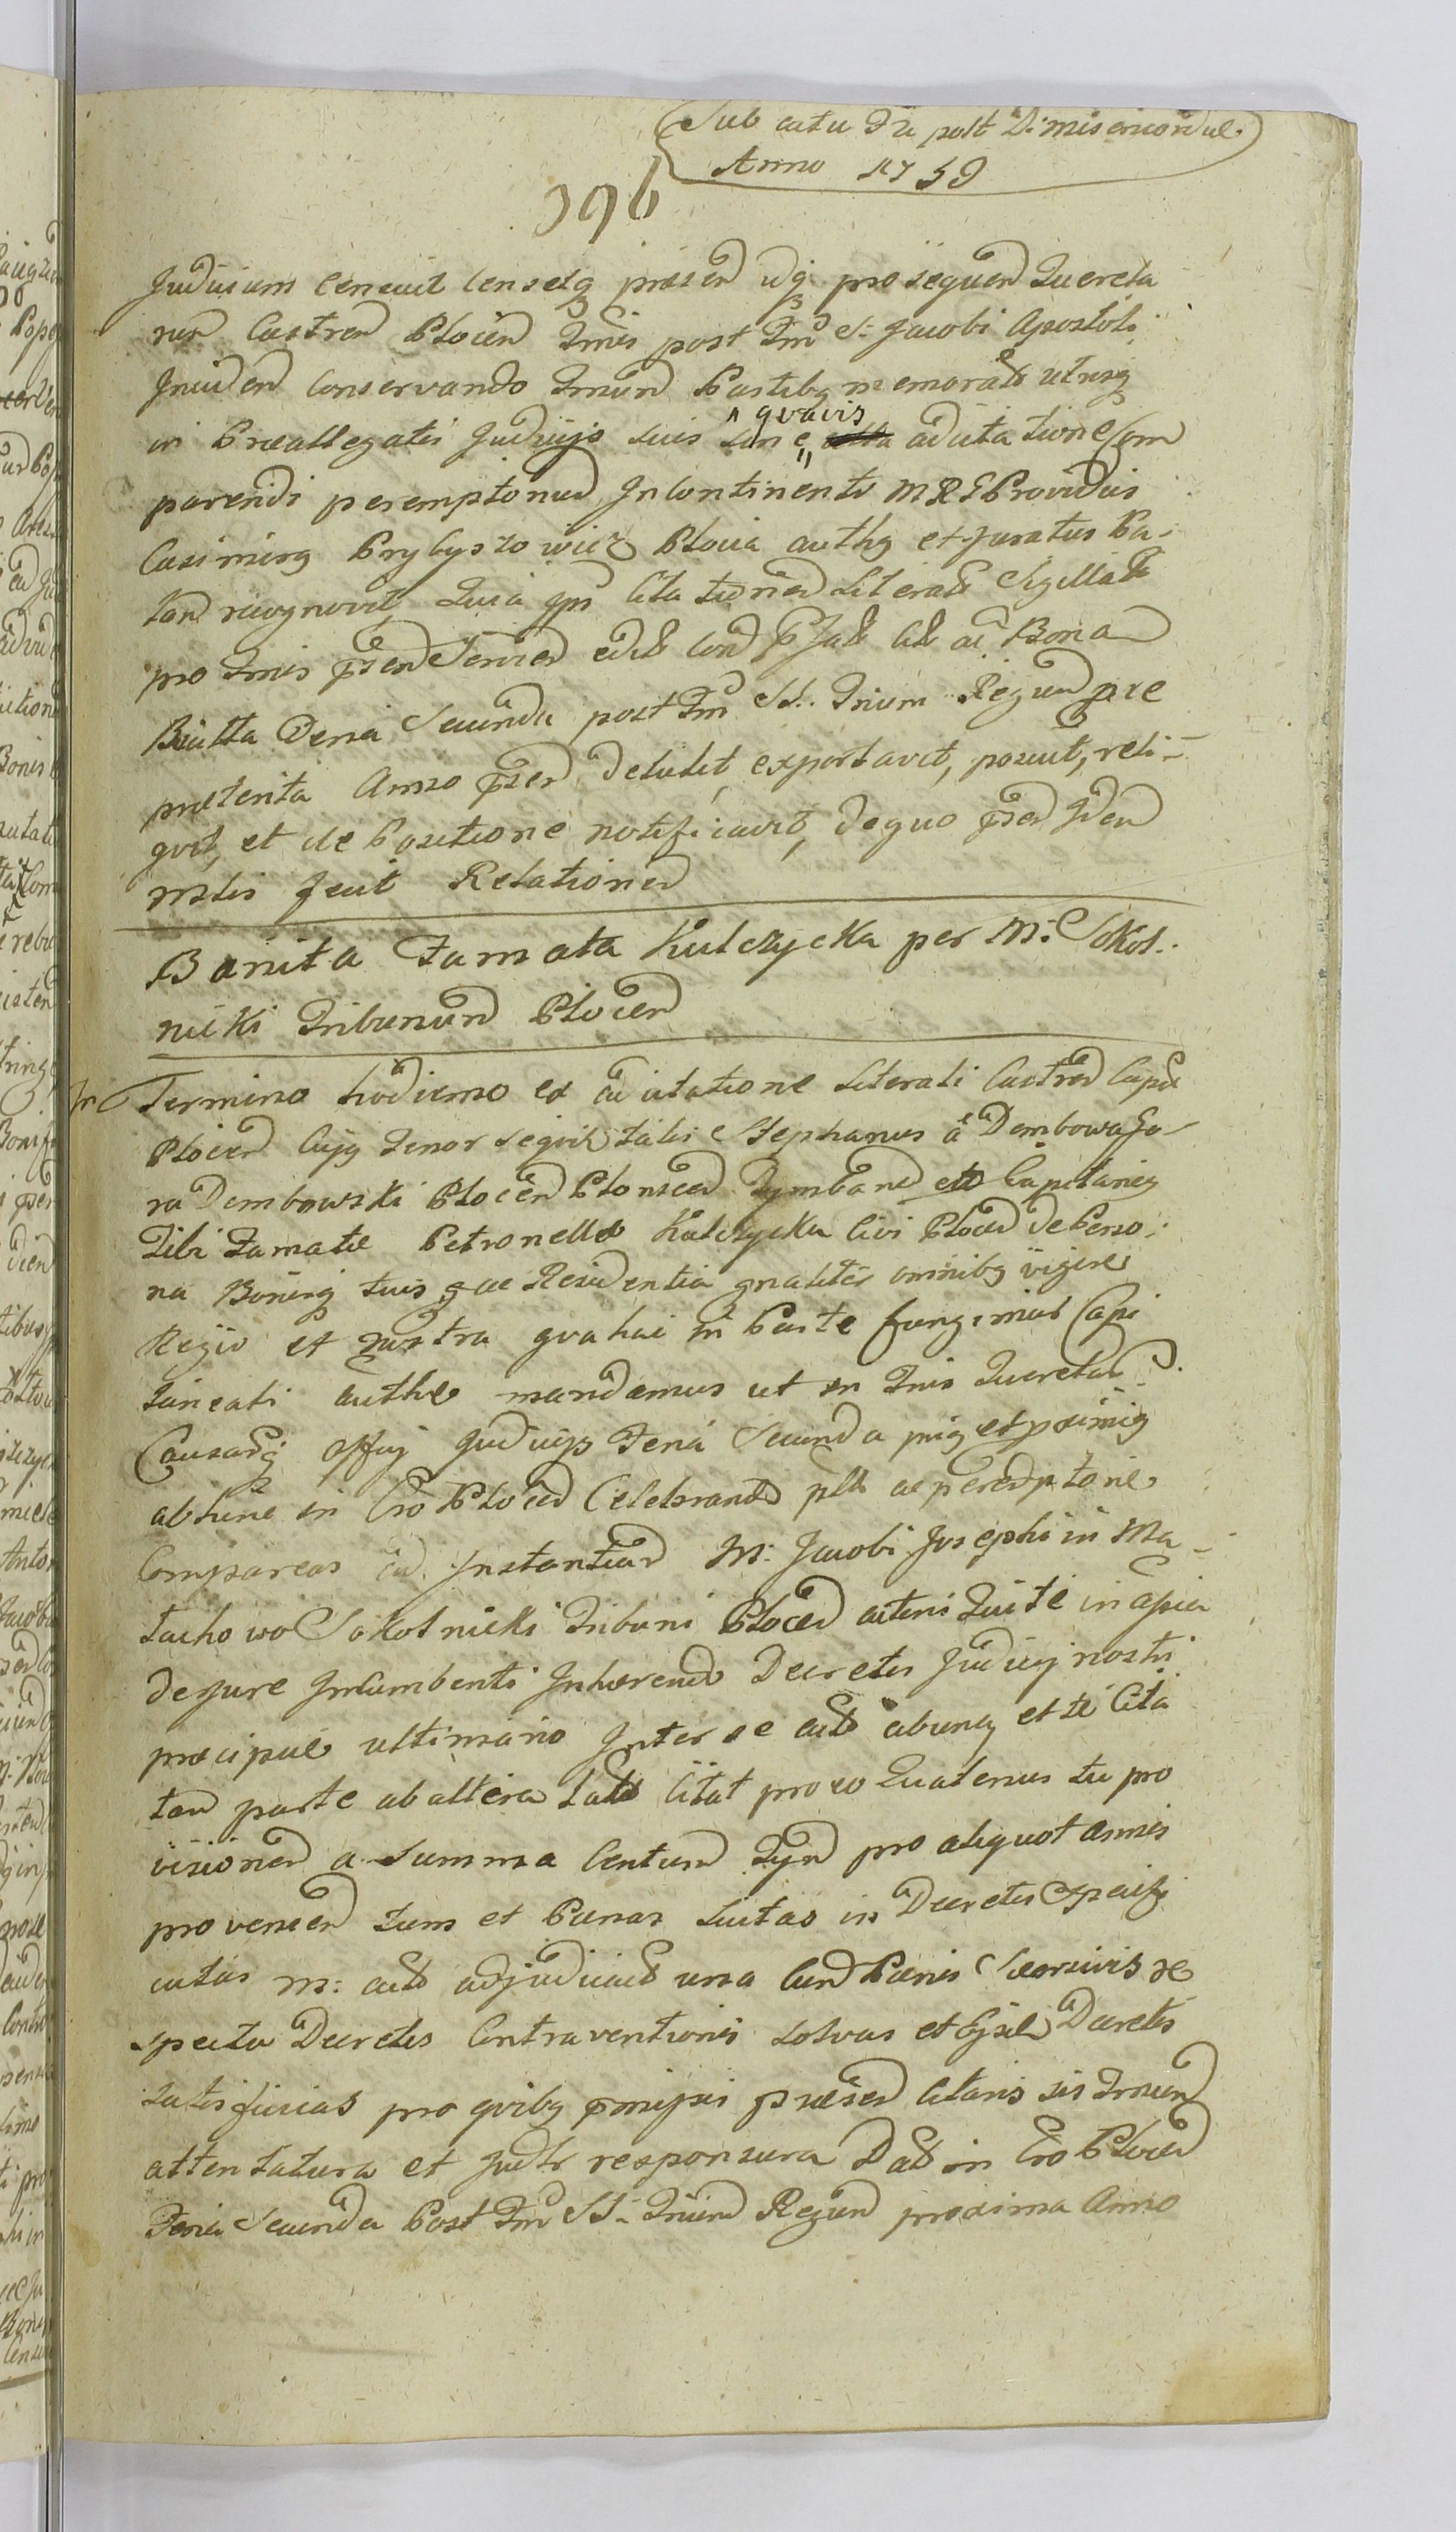 Sub actu Fa 2a post D: misericordiae
Anno 1759
396
Judicium censuit censetq praesen usq proseqven Querela
rum Castren Plocen Tmis post Fm S: Jacobi Apostoli
Inciden conservando Tmum Partibq memorats utrisq
in Praeallegatis Judicijs suis sine qvavis adcitatione Com
parendi peremptorium Incontinenti MRG Providus
Casimirq Przybyszowicz Plocia authq et juratus Pa-
tam recognovit, Quia ips Citationem Literats Sigillats
pro Tmis psen Servien edits con p Jats Cits ad Bona
Biulta Feria Secunda post Fm SS. Trium Regum prae
praeterita Anno psen detulit, exportavit, posuit, reli-
qvit, et de Positione notificavit, de quo psen Iden
mstis fecit Relationem
Banita Famata Kulczycka per M: Sokol-
nicki Tribunum Plocen
In Termino hodierno ex adcitatione Literali Castren Capli
Plocen Cujq Tenor seqvit talis Stephanus a Dembowa Go-
ra Dembowski Plocen Plonscen Tymbarc etc Capitaneq
Tibi Famatae Petronellae Kulczycka Civi Plocen de Perso-
na Bonisq tuis ac Residentia gnaliter omnibq vigore
Regio et nostra qva hac in Parte fungimur Capi
taneali authe mandamus ut in Tmis Querelar
Causarq offij Judicijs Feria Secunda priq et proximiq
abhinc in Cro Plocen Celebrand plr ac peremptorie
Compareas ad Instantiam M: Jacobi Josephi in Ma-
tachowo Sokolnicki Tribuni Plocen actoris Qui te in copia
de jure Incumbenti Inhaerendo Decretis Judicij nostri
praecipue ultimario Inter se acts ab una et te Cita
tam parte ab altera lats Citat pro eo Quatenus tu pro
visionem a Summa Centum Tyn pro aliquot Annis
provenien tum et Paenas luitas in Decretis Specifi
catas M: acts adjudicats una cum Paenis Successivis re
spectu Decretis Contraventionis solvas et Ejsd Decretis
satisfacias pro qvibq pmissis praesen Citaris sis Tmum
attentatura et Judr responsura Dats in Cro Plocen
Feria Secunda Post Fm SS: Trium Regum proxima Anno